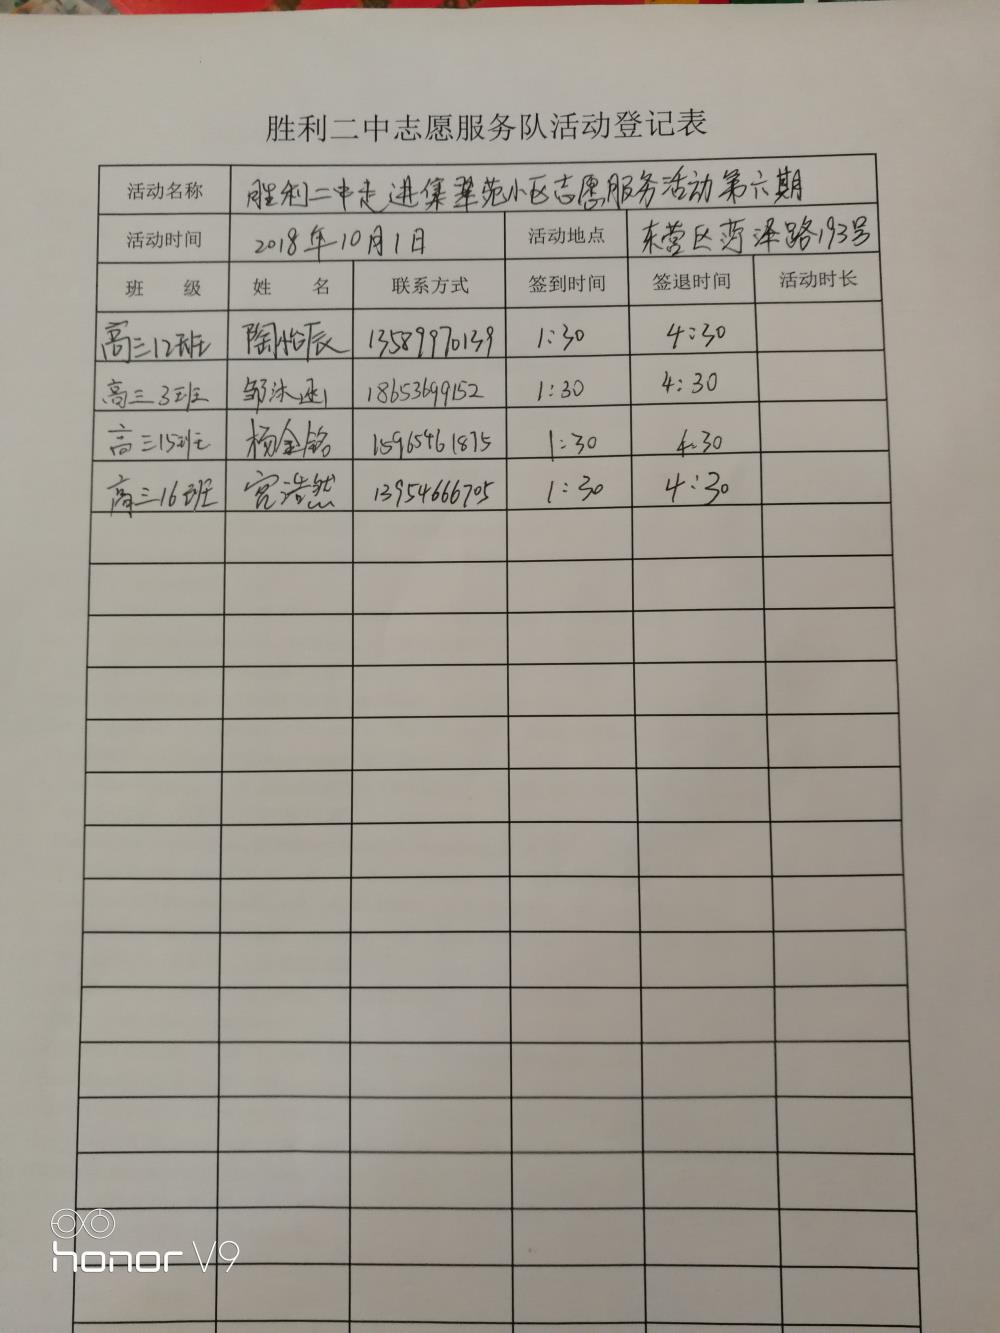 胜利二中志愿服务队活动登记表
活动名称 胜利二中走进集翠苑小区志愿服务活动第六期
活动时间 2018年10月1日 活动地点 东营区菏泽路193号
班 级 姓 名 联系方式 签到时间 签退时间 活动时长
高三12班 陶怡辰 13589970139 1:30 4:30
高三3班 邹沐函 18653699152 1:30 4:30
高三15班 杨金铭 15965461875 1:30 4:30
高三16班 宫浩然 13954666705 1:30 4:30
honor V9